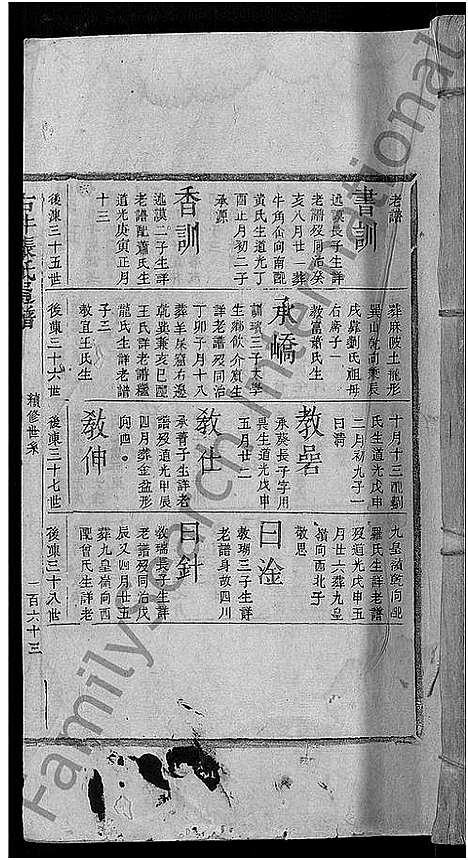 老譜
書訓
述謨長子生詳
老譜歿同治癸
亥八月廿一葬
牛角侖向南配
黃氏生道光丁
酉正月初二子
承源
香訓
述謨二子生詳
老譜配蕭氏生
道光庚寅正月
十三
後湅三十五世
葬麻陂土龍形
巽山乾向兼辰
戌葬劉氏祖母
右磜子一
教富蕭氏生
承嶠
訓璸三子太學
生鄉飲介賓生
詳老譜歿同治
丁卯子月十八
葬羊屎窟石邊
乾巽兼亥巳配
王氏詳老譜繼
龍氏生詳老譜
子三
教宜王氏生
後湅三十六世
十月十三配劉
氏生道光戊申
二月初九子一
曰淯
教碞
承葵長子字用
異生道光戊申
五月廿二
教仕
承膏子生詳老
譜歿道光甲辰
四月葬金盆形
向西
教伸
後湅三十七世
九皇嶺乾向配
羅氏生詳老譜
歿道光戊申五
月廿六葬九皇
嶺向西北子
教恩
曰淦
教瑚三子生詳
老譜身故四川
曰針
教瑞長子生詳
老譜歿同治戊
辰又四月廿五
葬九皇嶺向西
配曾氏生詳老
後湅三十八世
張氏
譜
續修世系
一百六十三
FamilySearch International